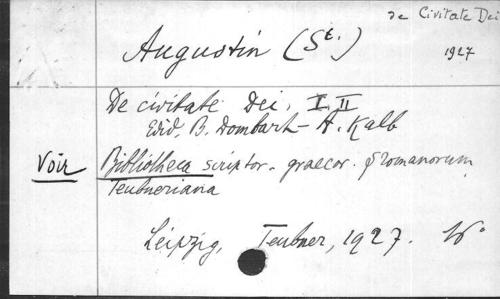 de Civitate Dei
Augustin (St.)
1927
De civitate Dei. I. II
Edid. B. Dombart - A. Kalb
Voir Bibliotheca scriptor. graecor. & Romanorum
Teubneriana
Leipzig, Teubner, 1927.